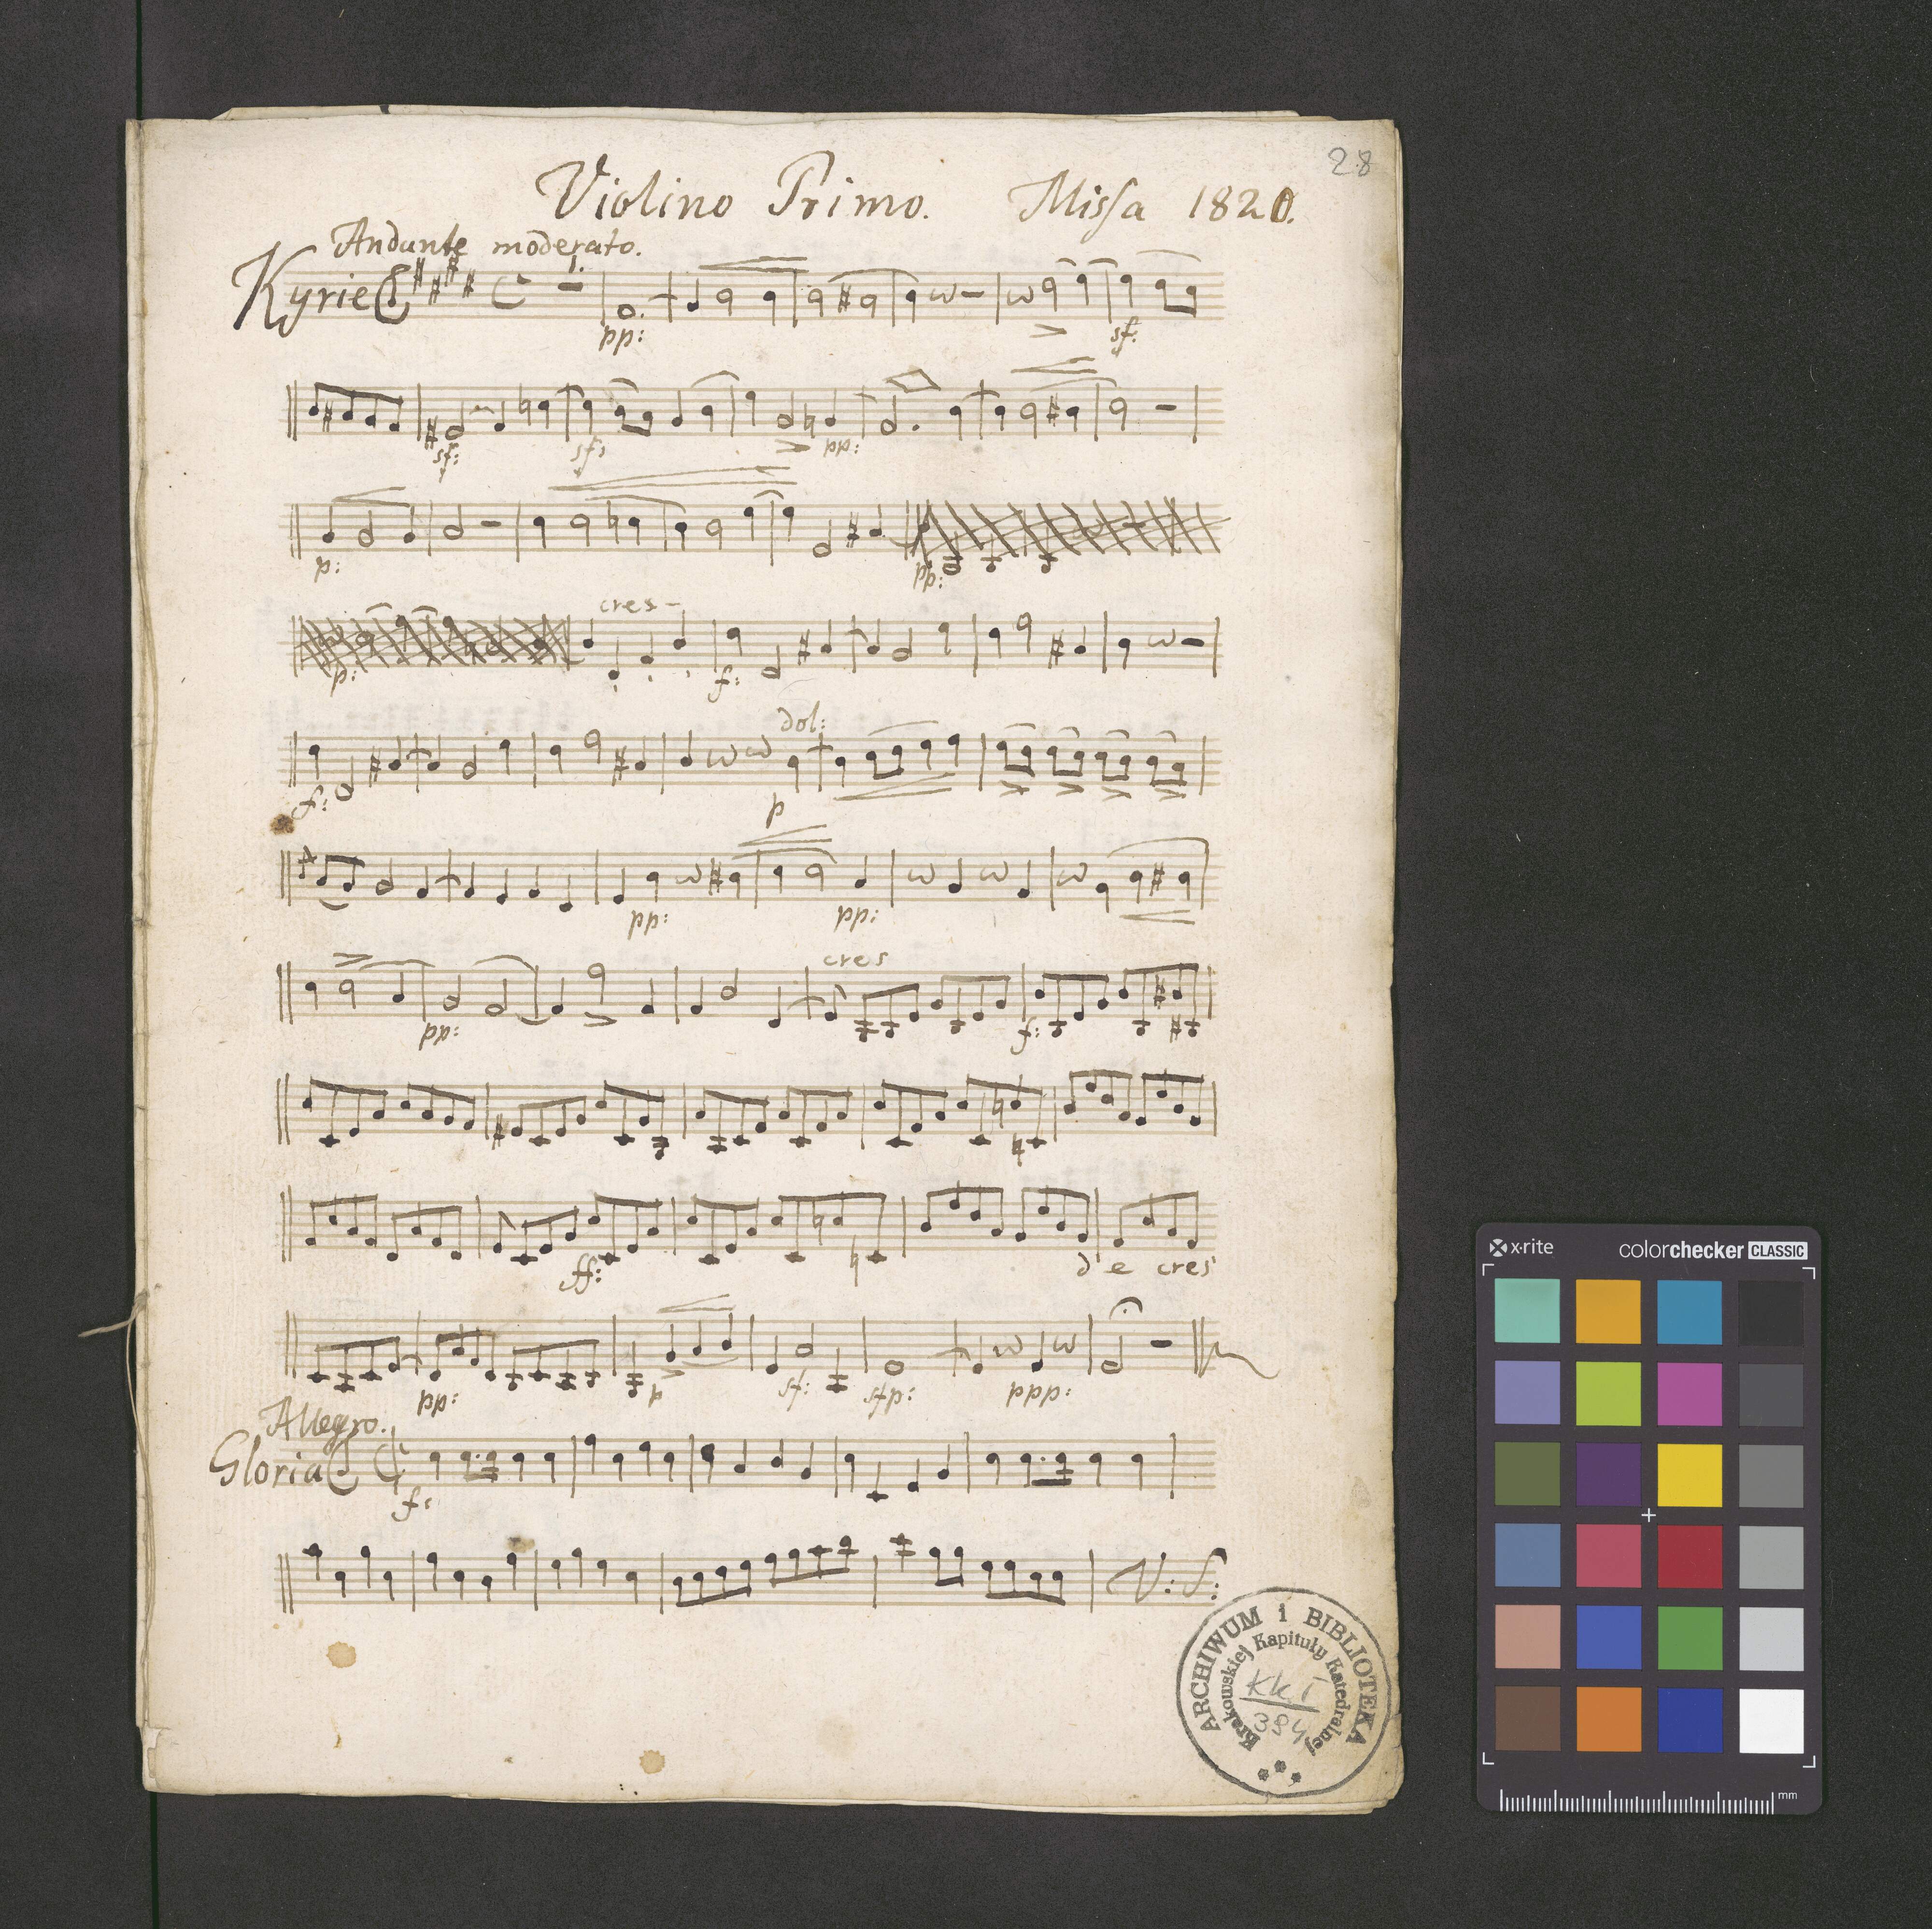 28
Violino Primo. Missa 1820.
Andante moderato.
1.
Kyrie
pp: sf:
sf: sf: pp:
p: pp:
cres-
p: f:
dol:
f: p
pp: pp:
cres
pp: f:
ff: de cres
pp: p sf: sfp: ppp:
Allegro.
Gloria
f:
V: S:
ARCHIWUM i BIBLIOTEKA
Krakowskiej Kapituły Katedralnej
KK I
384
x-rite colorchecker CLASSIC
mm